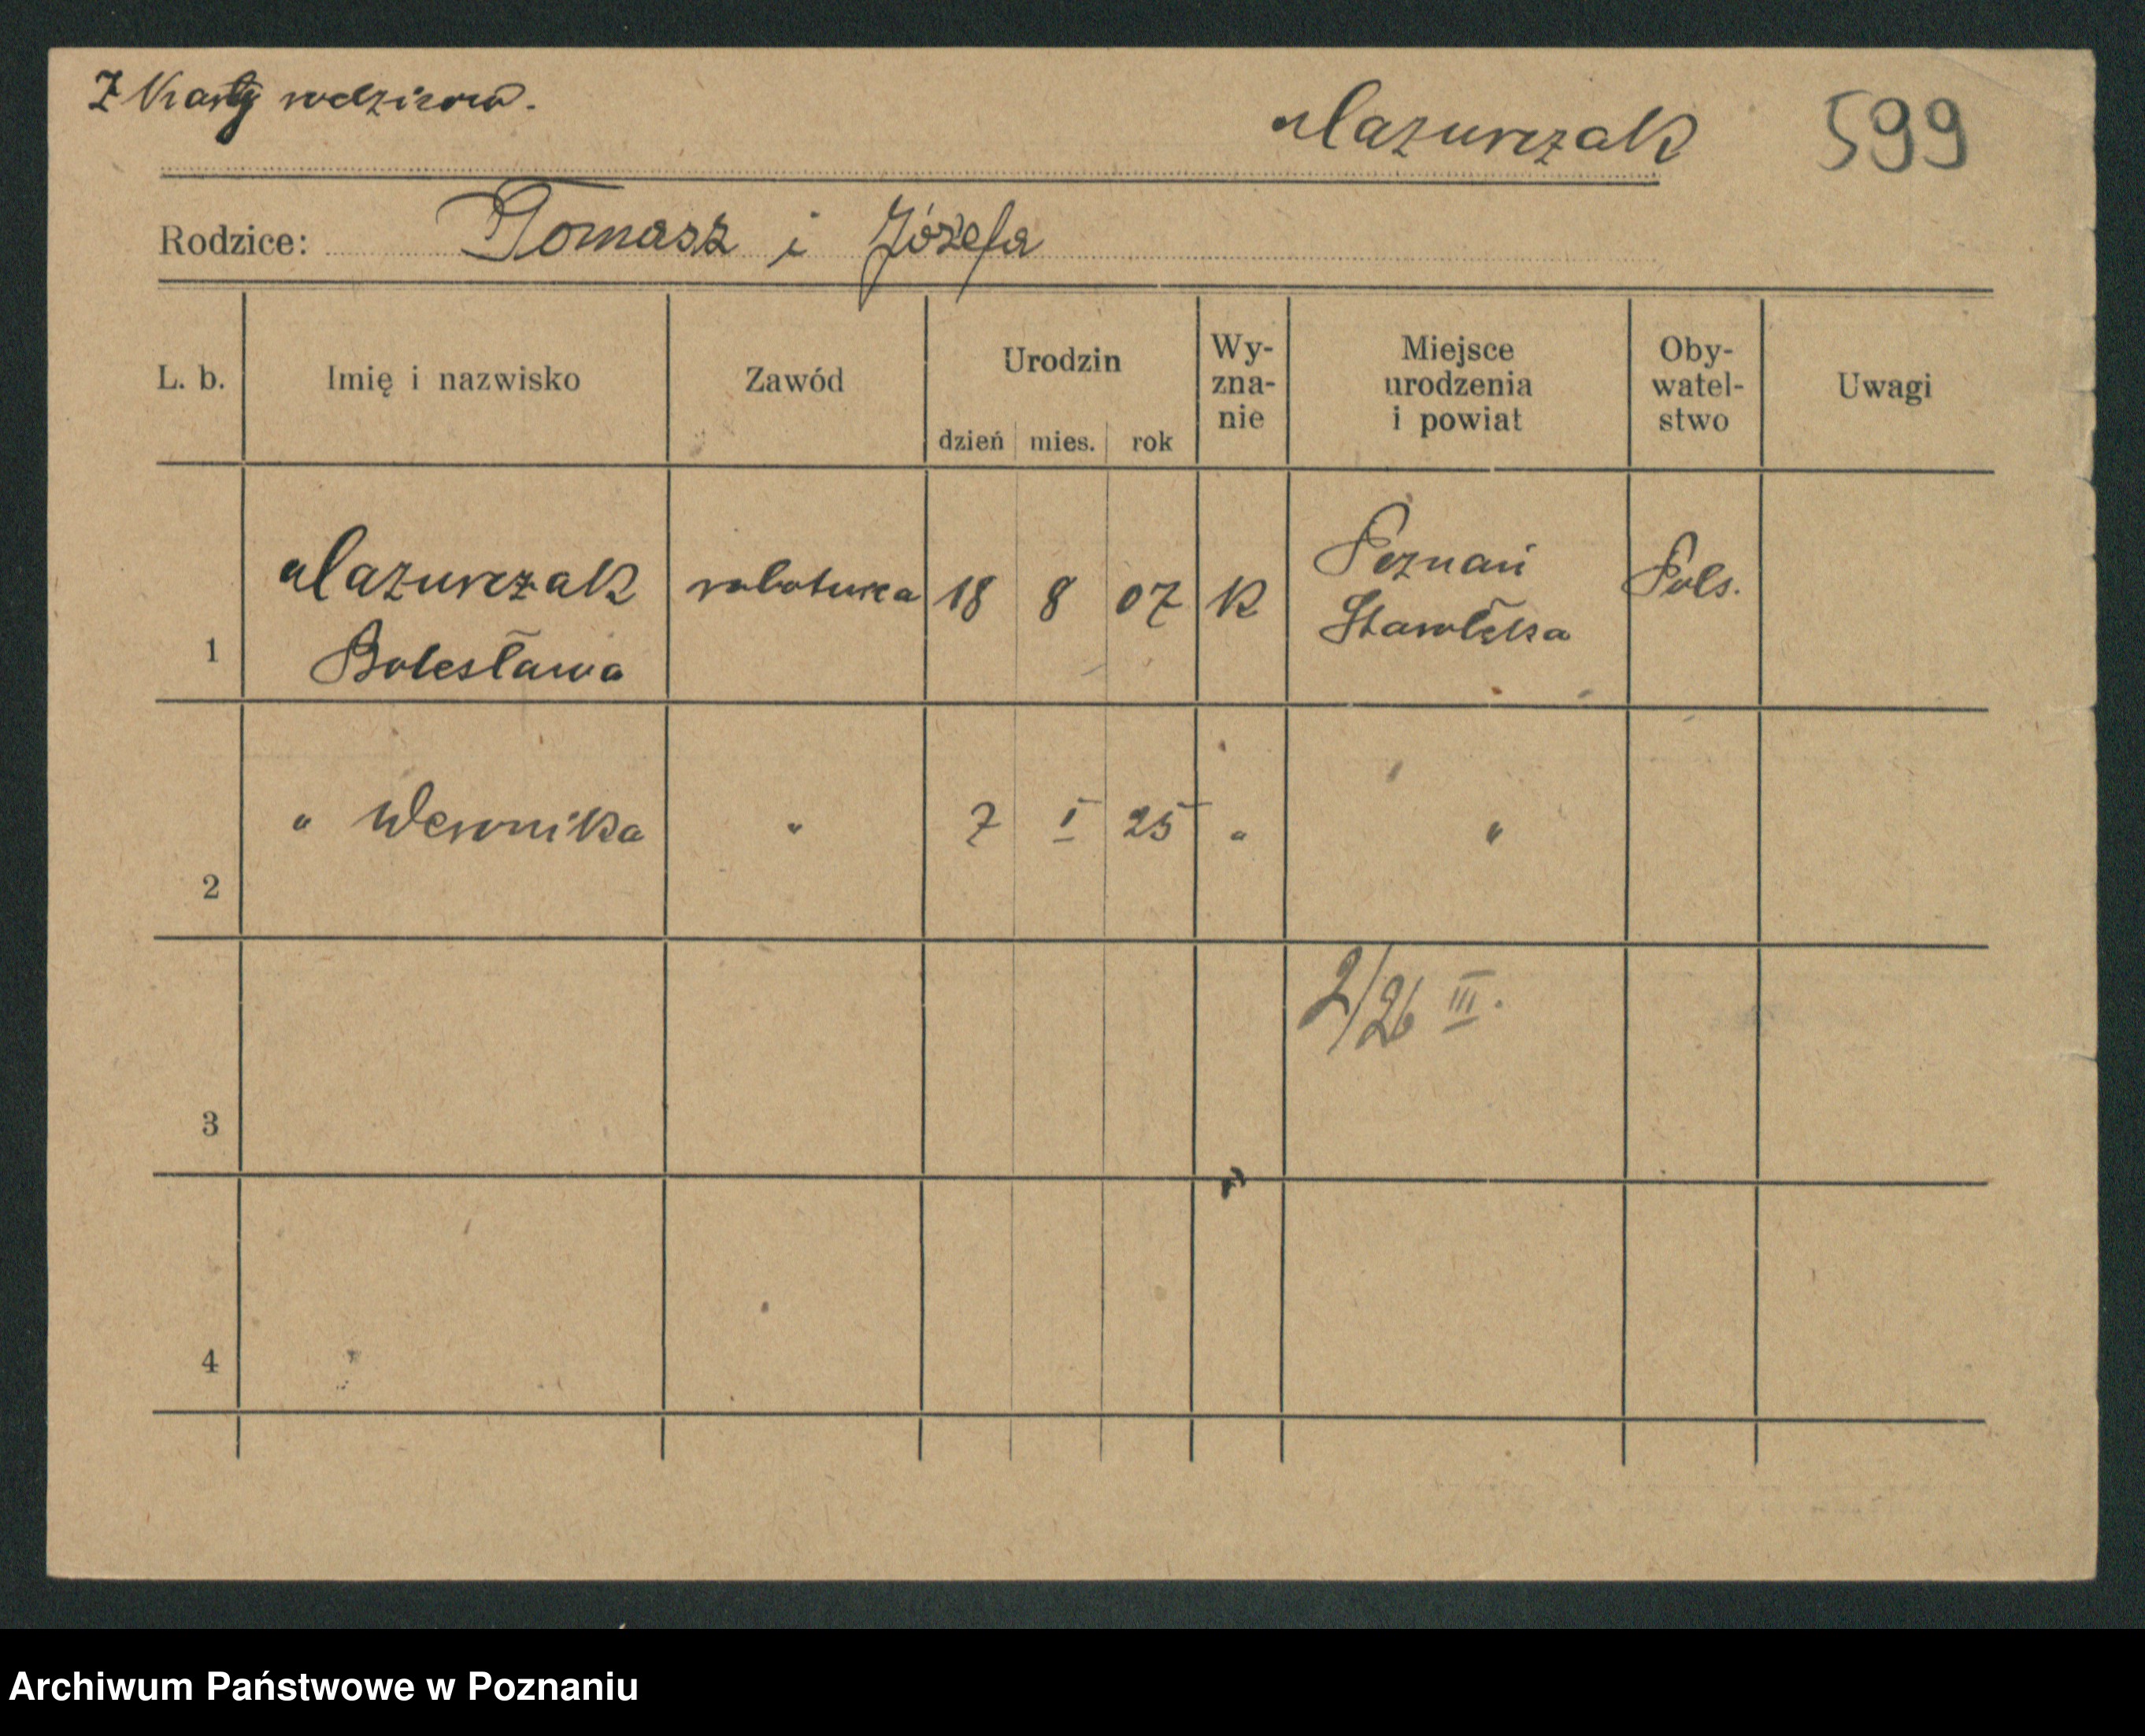 Z Karty rodziców.
Mazurczak 599
Rodzice: Tomasz i Józefa
L. b. Imię i nazwisko Zawód Urodzin dzień mies. rok Wy-zna-nie Miejsce urodzenia i powiat Oby-watel-stwo Uwagi
1 Mazurczak Bolesława robotnica 18 8 07 K Poznań Starołęka Pols.
2 " Weronika " 7 I 25 " "
2/26 III.
3
4
Archiwum Państwowe w Poznaniu